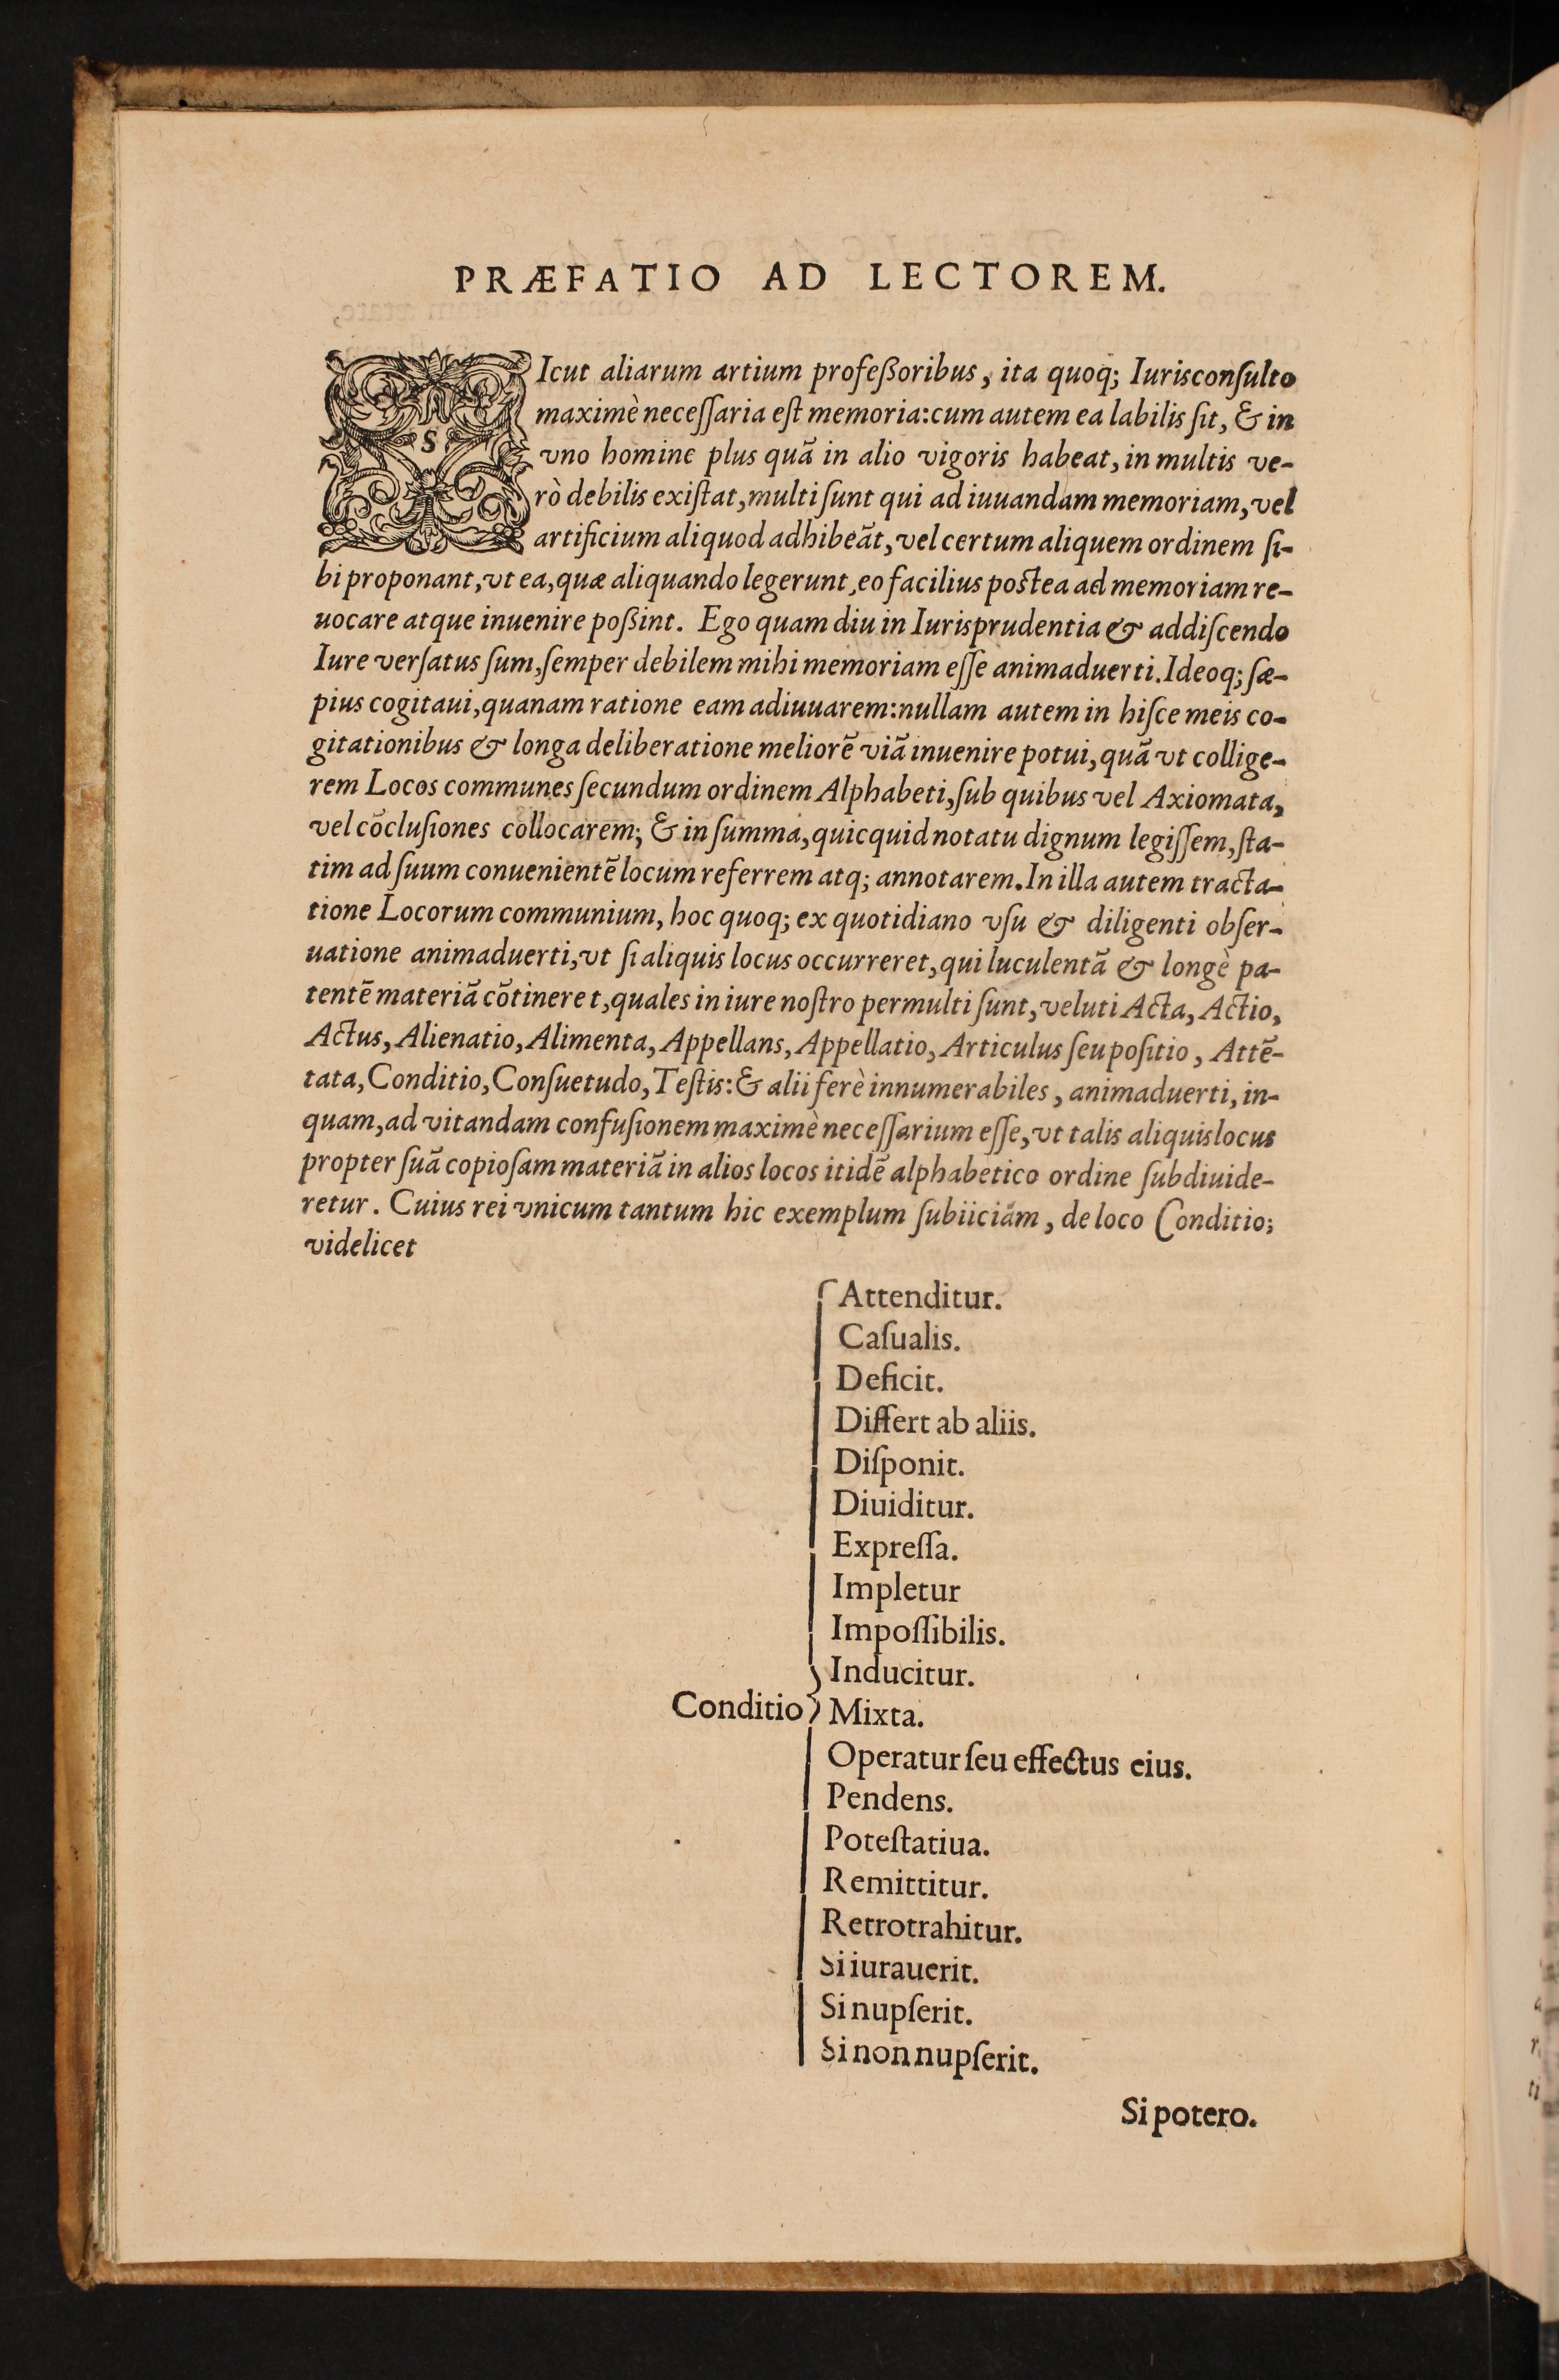 PRÆFATIO AD LECTOREM.
SIcut aliarum artium profeßoribus, ita quoq; Iurisconſulto
maximè neceſſaria eſt memoria: cum autem ea labilis ſit, & in
vno homine plus quã in alio vigoris habeat, in multis ve-
rò debilis exiſtat, multi ſunt qui ad iuuandam memoriam, vel
artificium aliquod adhibeãt, vel certum aliquem ordinem ſi-
bi proponant, vt ea, quæ aliquando legerunt, eo facilius poſtea ad memoriam re-
uocare atque inuenire poßint. Ego quam diu in Iurisprudentia & addiſcendo
Iure verſatus ſum, ſemper debilem mihi memoriam eſſe animaduerti. Ideoq; ſæ-
pius cogitaui, quanam ratione eam adiuuarem: nullam autem in hiſce meis co-
gitationibus & longa deliberatione meliorẽ viã inuenire potui, quã vt collige-
rem Locos communes ſecundum ordinem Alphabeti, ſub quibus vel Axiomata,
vel cõcluſiones collocarem; & in ſumma, quicquid notatu dignum legiſſem, ſta-
tim ad ſuum conuenientẽ locum referrem atq; annotarem. In illa autem tracta-
tione Locorum communium, hoc quoq; ex quotidiano vſu & diligenti obſer-
uatione animaduerti, vt ſi aliquis locus occurreret, qui luculentã & longè pa-
tentẽ materiã cõtineret, quales in iure noſtro permulti ſunt, veluti Acta, Actio,
Actus, Alienatio, Alimenta, Appellans, Appellatio, Articulus ſeu poſitio, Attẽ-
tata, Conditio, Conſuetudo, Teſtis: & alii ferè innumerabiles, animaduerti, in-
quam, ad vitandam confuſionem maximè neceſſarium eſſe, vt talis aliquis locus
propter ſuã copioſam materiã in alios locos itidẽ alphabetico ordine ſubdiuide-
retur. Cuius rei vnicum tantum hic exemplum ſubiiciam, de loco Conditio;
videlicet
Attenditur.
Caſualis.
Deficit.
Differt ab aliis.
Diſponit.
Diuiditur.
Expreſſa.
Impletur
Impoſſibilis.
Inducitur.
Conditio Mixta.
Operatur ſeu effectus eius.
Pendens.
Poteſtatiua.
Remittitur.
Retrotrahitur.
Si iurauerit.
Si nupſerit.
Si non nupſerit.
Si potero.